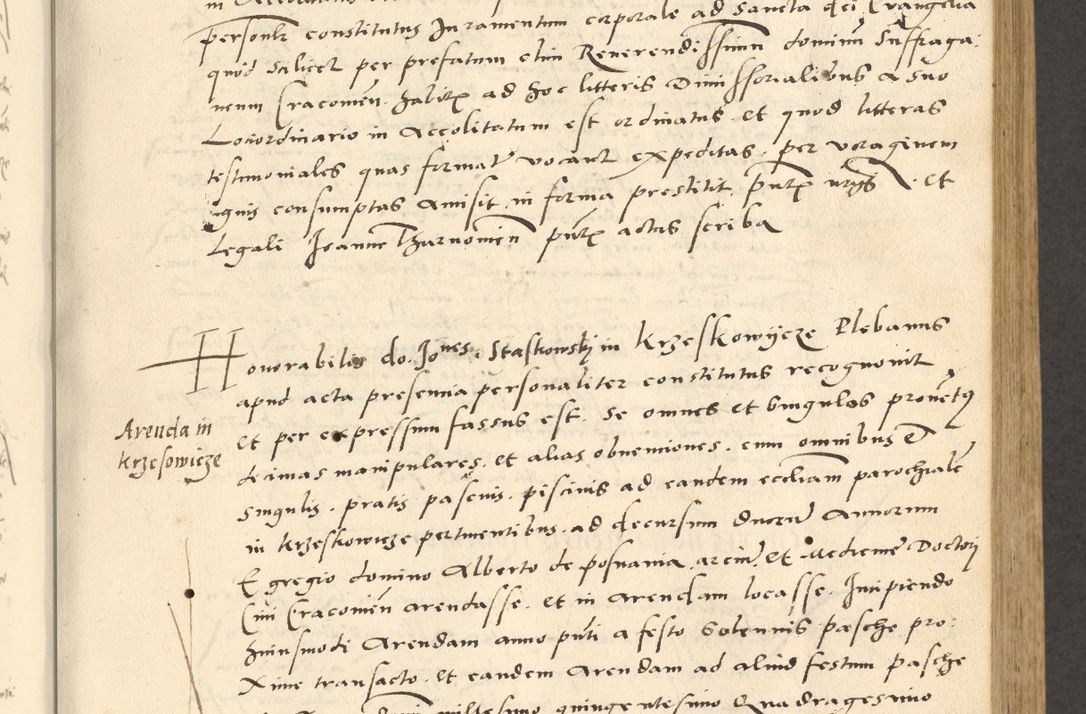 personlr constitutus Juramentum corporale ad Sancta dei Evangelia
quod scilicet per prefatum etim Reverendissimum dominum Suffraga:
neum Cracovien. habitis ad hoc litteris Dimissorialibus a suo
Loci ordinario in Accolitatum est ordinatus. et quod litteras
testimoniales quas format vocant expeditas. per voraginem
ignis consumptas amisit in forma prestitit. pntx . et
Legali Joanne Tharnomien pntx actus scriba
Honorabilis do. Jones. Staskowskj in krzeskowijcze Plebanus
apud acta presencia personaliter constitutus recognovit
et per expressum fassus est. Se omnes et singulos proventus
decimas manipulares. et alias obvenciones. cum omnibus et
Arenda in
krzesowicze
singulis. pratis pascuis. piscinis ad eandem ecclesiam parochiale
in krzeskowicze pertinentibus. ad decursum duorum Annorum
Egregio domino Alberto de posnania arcium et Medicine Doctorj
Civi Cracovien arendasse. et in arendam locasse. Incipiendo
huiusmodi Arendam anno pnti a festo solennis pasche pro:
xime transacto. et eandem Arendam ad aliud festum pasche
millesimo quingentesimo Quadragesimo